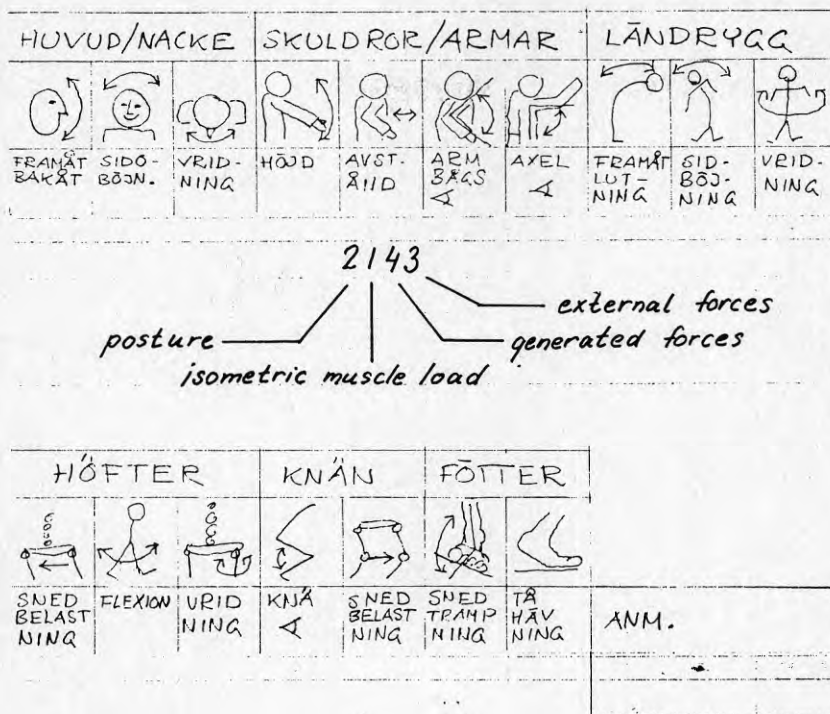 HUVUD/NACKE SKULDROR/ARMAR LÄNDRYGG
FRAMÅT BAKÅT
SIDO- BÖJN.
VRID- NING
HÖJD
AVST- ÅND
ARM BÅGS ∢
AXEL ∢
FRAMÅT LUT- NING
SID- BÖJ- NING
VRID- NING
2143
external forces
posture generated forces
isometric muscle load
HÖFTER KNÄN FÖTTER
SNED BELAST NING
FLEXION
VRID NING
KNÄ ∢
SNED BELAST NING
SNED TRAMP NING
TÅ HÄV NING
ANM.